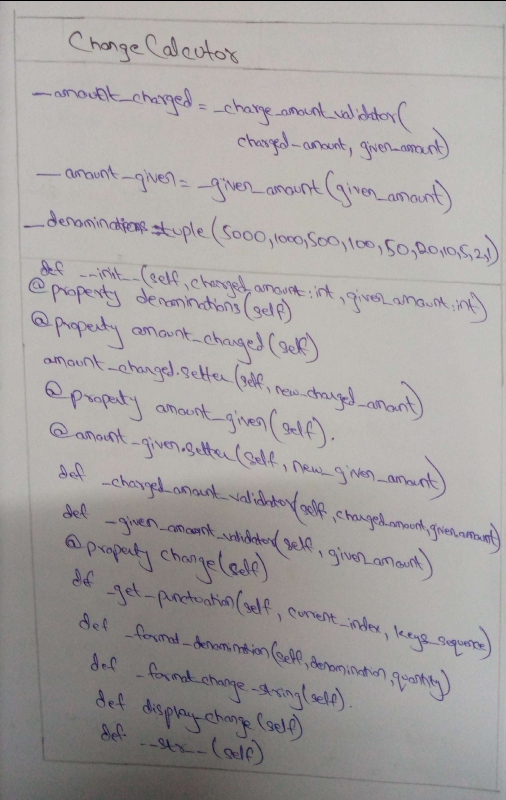 ChangeCalcutor
_amount_charged = _charge_amount_validator(
charged_amount, given_amount)
_amount_given = _given_amount(given_amount)
_denominations = tuple(5000,1000,500,100,50,20,10,5,2,1)
def __init__(self, charged_amount:int, given_amount:int)
@property denominations(self)
@property amount_charged(self)
amount_charged.setter(self, new_charged_amount)
@property amount_given(self).
@amount_given.setter(self, new_given_amount)
def _charged_amount_validator(self, charged_amount, given_amount)
def _given_amount_validator(self, given_amount)
@property change(self)
def _get_punctuation(self, current_index, keys_sequence)
def _format_denomination(self, denomination, quantity)
def _format_change_string(self).
def display_change(self)
def __str__(self)